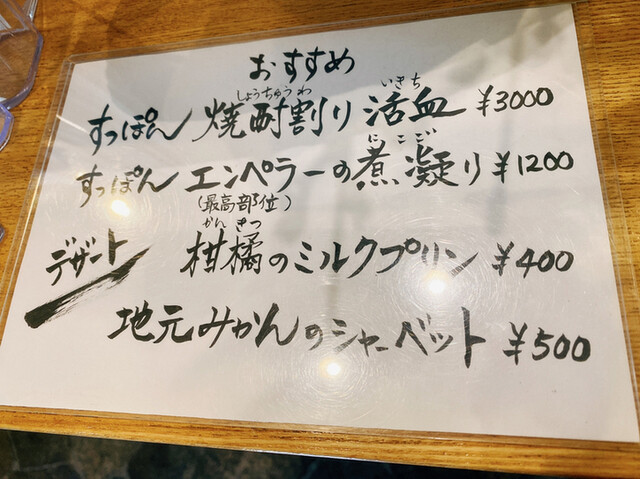 おすすめ
しょうちゅうわ いきち
すっぽん 焼酎割り 活血 ¥3000
にこご
すっぽん エンペラーの煮凝り ¥1200
(最高部位)
かんきつ
デザート 柑橘のミルクプリン ¥400
地元みかんのシャーベット ¥500